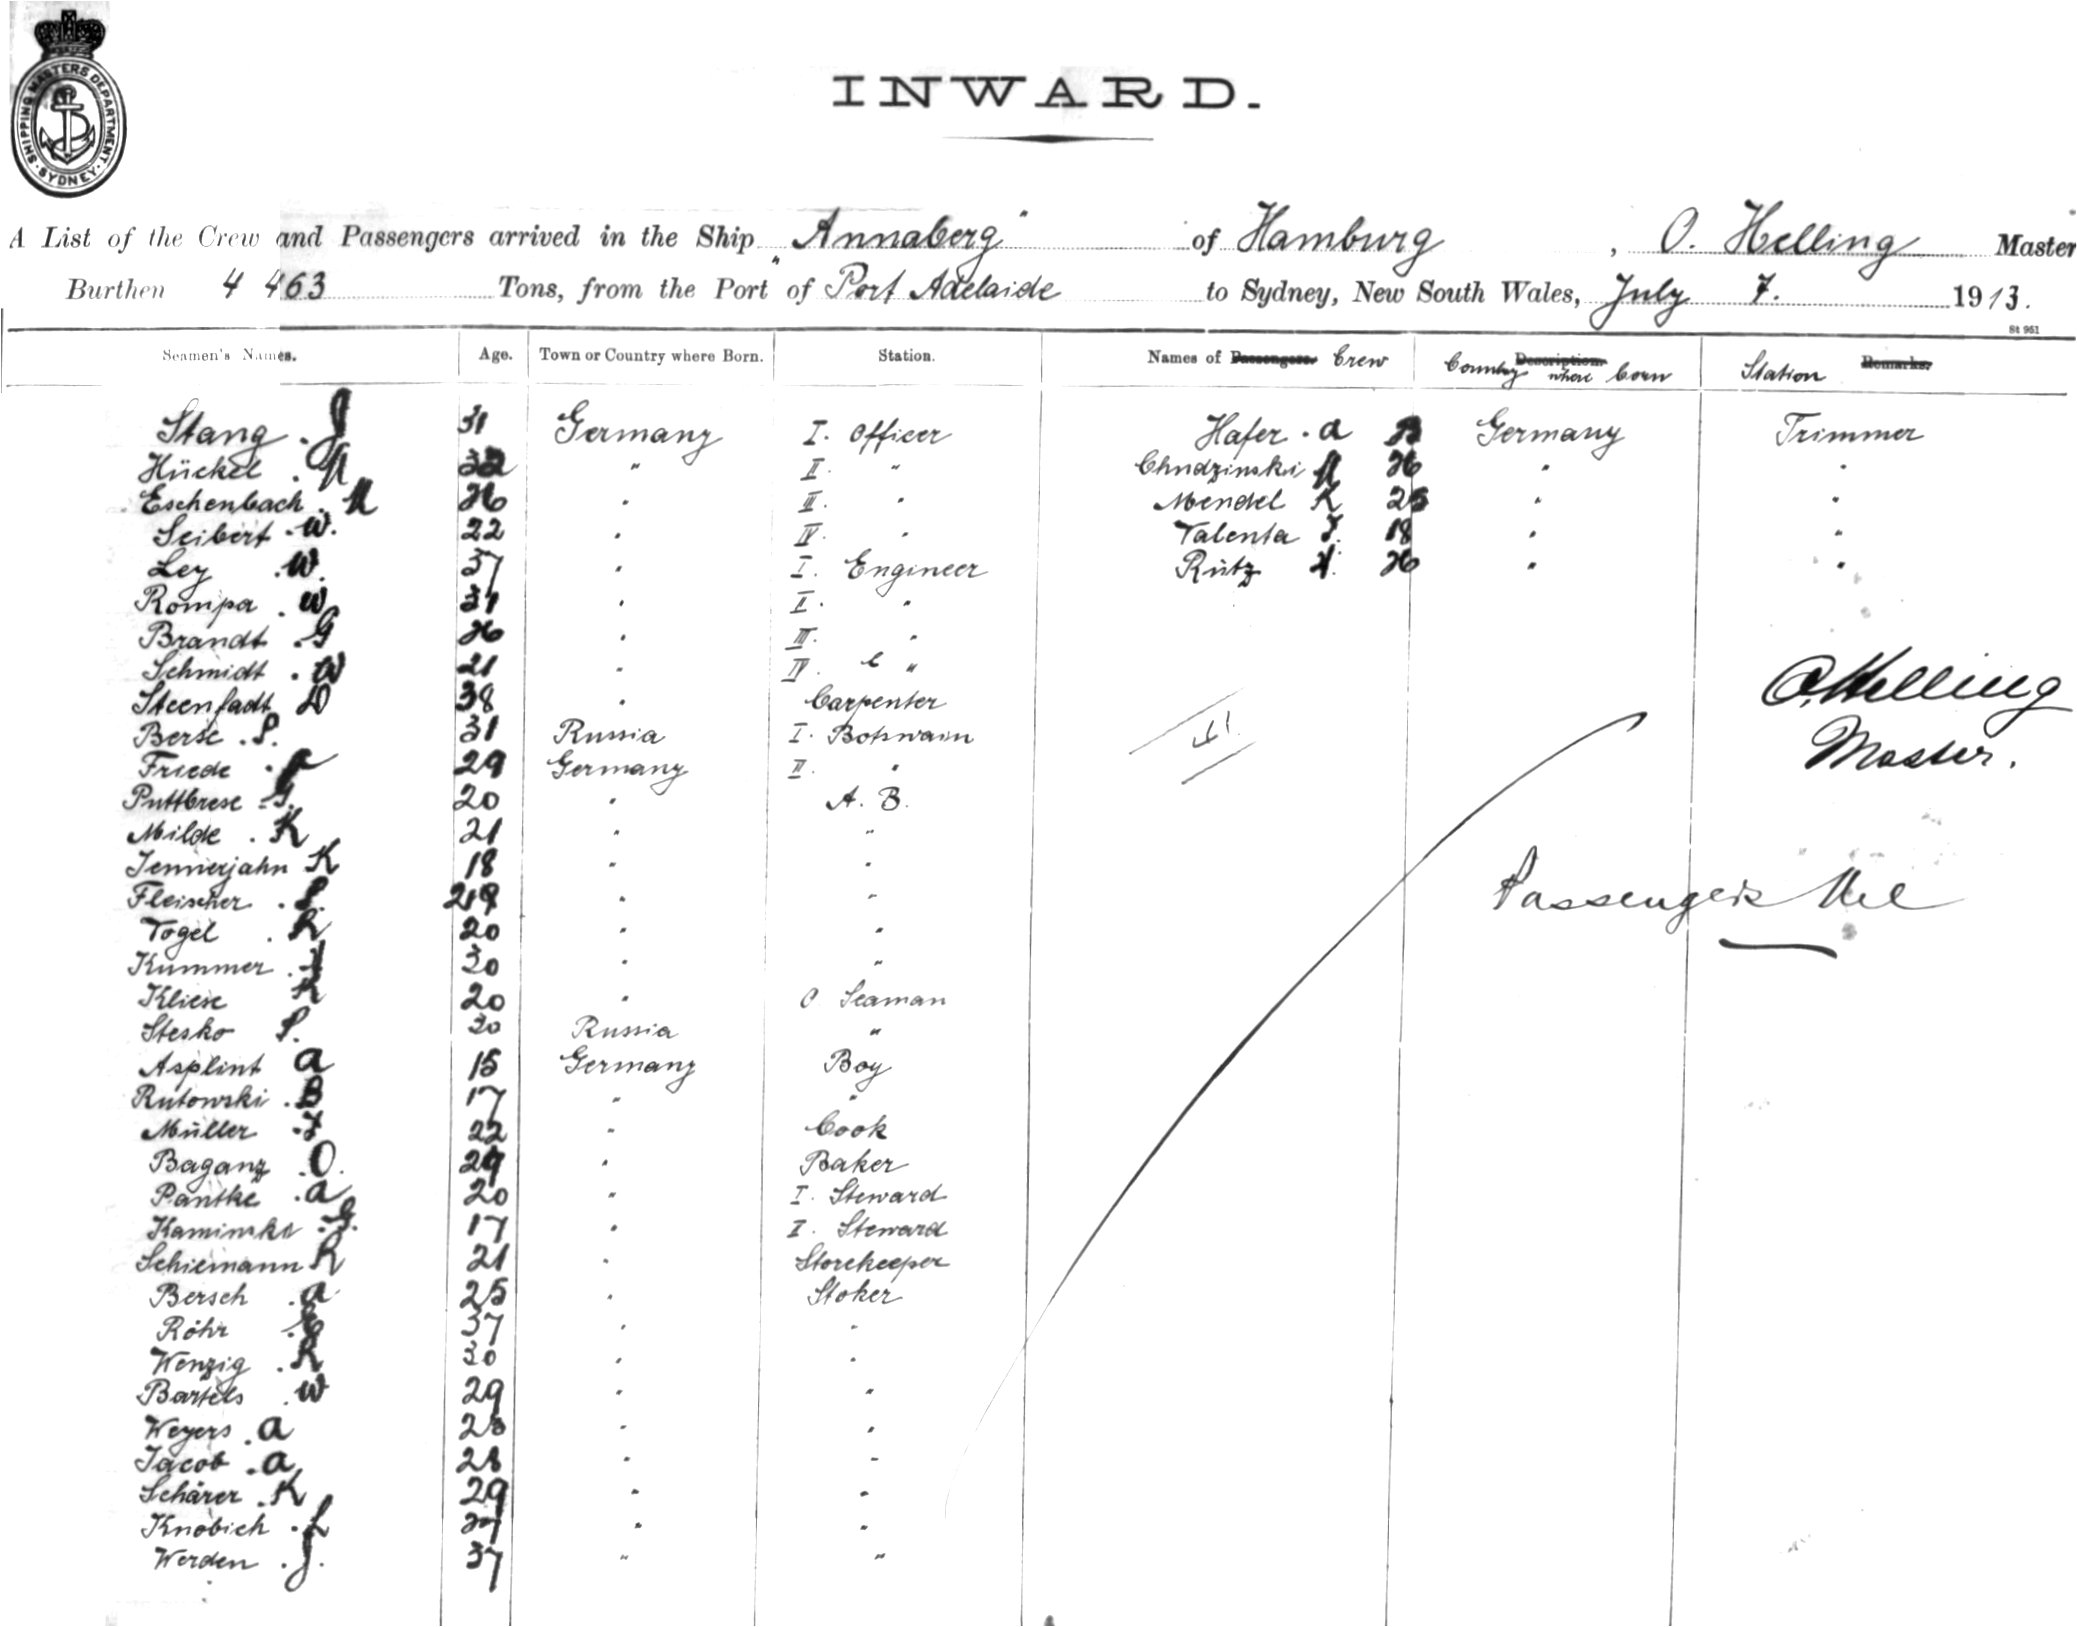 SHIPPING MASTERS DEPARTMENT. SYDNEY.
INWARD.
A List of the Crew and Passengers arrived in the Ship "Annaberg" of Hamburg, O. Helling Master
Burthen 4 463 Tons, from the Port of Port Adelaide to Sydney, New South Wales, July 7. 1913.
St 961
Seamen's Names. Age. Town or Country where Born. Station. Names of Passengers. Crew Description. Country where born Station Remarks.
Stang . J 31 Germany I. Officer Hafer . A Germany Trimmer
Hückel . " II. " Chudzinski 26 " "
Eschenbach . 26 " III. " Mendel K 25 " "
Seibert . W. 22 " IV. " Talenta 18 " "
Ley . W. 37 " I. Engineer Rütz 26 " "
Rompa . W 31 " II. "
Brandt . G 26 " III. "
Schmidt . W 21 " IV. "
Steenfadt D 38 " Carpenter
Berse . P. 31 Russia I. Botswain
Friede . 29 Germany II. "
Puttbrese . G. 20 " A. B.
Milde . K 21 " "
Jennerjahn K 18 " "
Fleischer . P. " "
Togel . R 20 " "
Kummer . 30 " "
Kliese K 20 " O Seaman
Stesko P. 30 Russia "
Asplint A 15 Germany Boy
Rutowski . B 17 " "
Müller . F 22 " Cook
Baganz . O. 29 " Baker
Pantke . A 20 " I. Steward
Kaminski . G. 17 " II. Steward
Schiemann R 21 " Storekeeper
Bersch . A 25 " Stoker
Röhr . 37 " "
Wenzig . R 30 " "
Bartels . W 29 " "
Weyers . A 28 " "
Jacob . A 28 " "
Schärer . K 29 " "
Knobich . L 27 " "
Werden . J. 37 " "
O. Helling
Master.
Passengers Nil